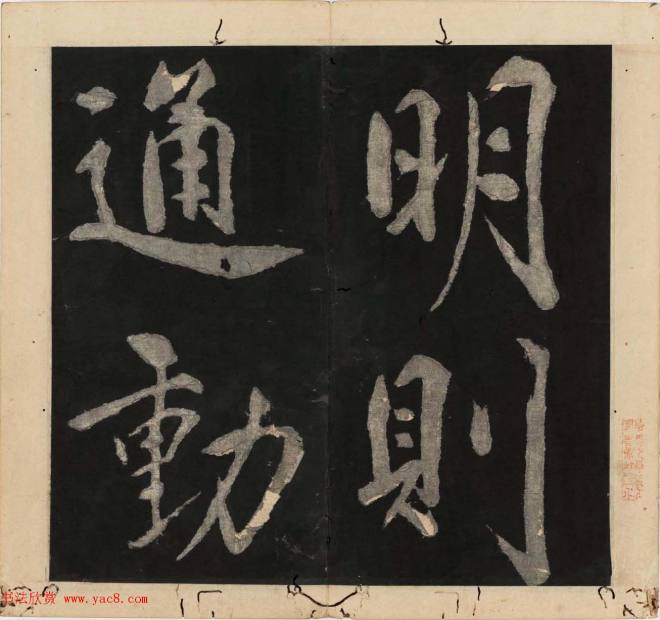 明則
通動
书法欣赏 www.yac8.com